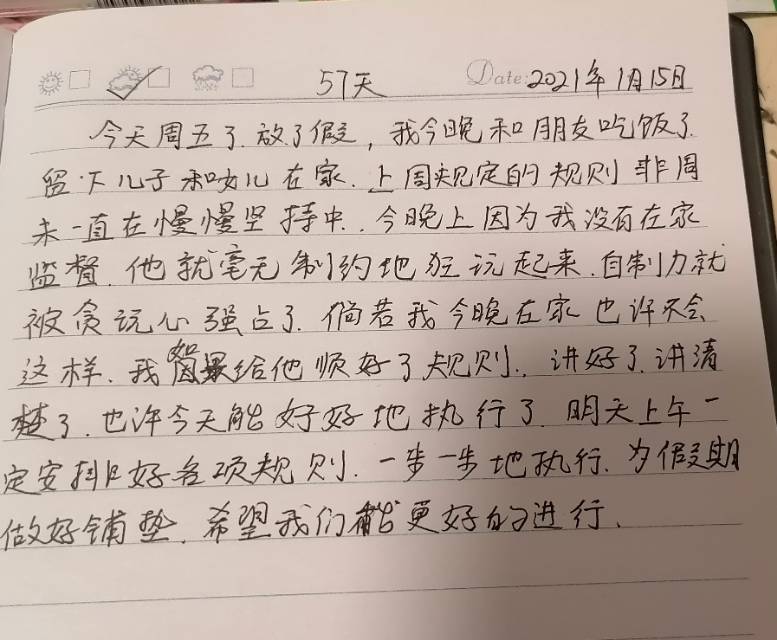 57天 Date: 2021年1月15日
今天周五了.放了假,我今晚和朋友吃饭了.
留下儿子和女儿在家.上周规定的规则非周
末一直在慢慢坚持中..今晚上因为我没有在家
监督.他就毫无制约地狂玩起来.自制力就
被贪玩心强占了.倘若我今晚在家也许不会
这样.我如果给他顺好了规则.,讲好了.讲清
楚了.也许今天能好好地执行了.明天上午一
定安排好各项规则.一步一步地执行.为假期
做好铺垫.希望我们能更好的进行.